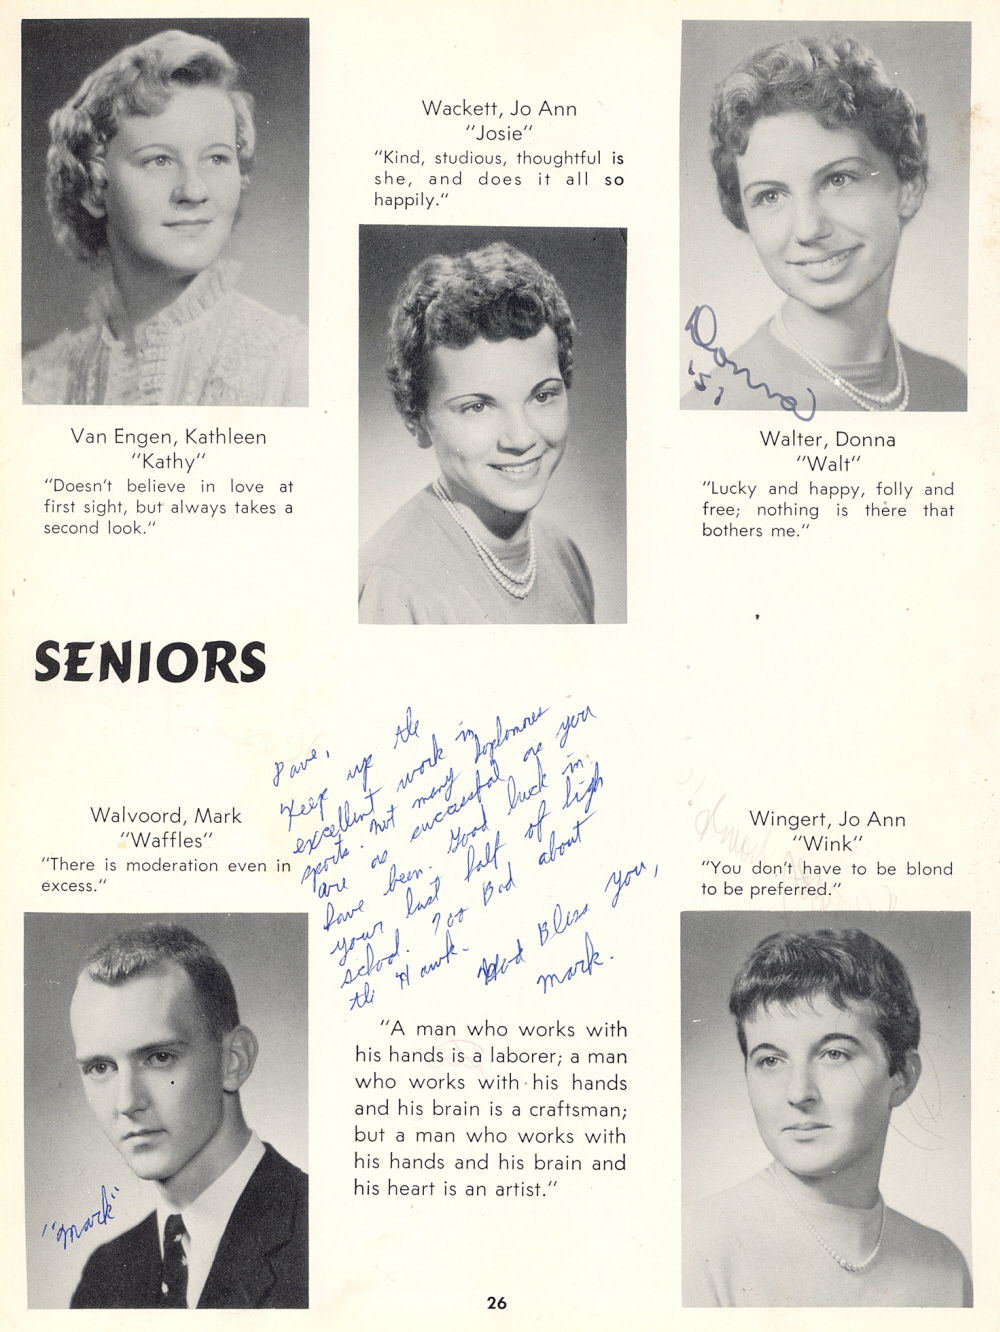 Wackett, Jo Ann
"Josie"
"Kind, studious, thoughtful is
she, and does it all so
happily."
Donna
'5
Van Engen, Kathleen
"Kathy"
"Doesn't believe in love at
first sight, but always takes a
second look."
Walter, Donna
"Walt"
"Lucky and happy, folly and
free; nothing is there that
bothers me."
SENIORS
Dave,
Keep up the
excellent work in
sports. Not many sophomores
are as successful as you
have been. Good luck in
your last half of high
school. Too Bad about
the "Hawk".
God Bless you,
Mark.
Walvoord, Mark
"Waffles"
"There is moderation even in
excess."
Wingert, Jo Ann
"Wink"
"You don't have to be blond
to be preferred."
"Mark"
"A man who works with
his hands is a laborer; a man
who works with his hands
and his brain is a craftsman;
but a man who works with
his hands and his brain and
his heart is an artist."
26